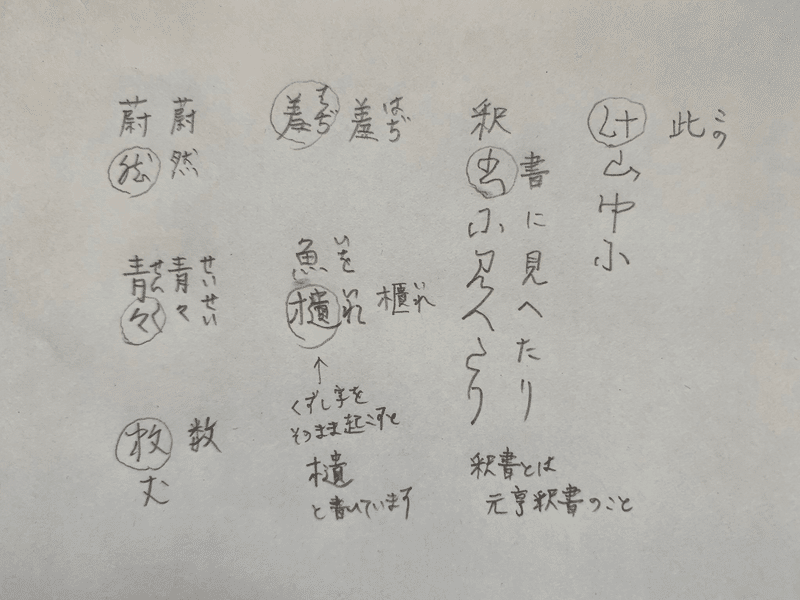 此
この
山中に
釈書に見へたり
釈書に見へたり
釈書とは
元亨釈書のこと
羞
はぢ
羞
はぢ
櫃
いれ
魚
いを
いれ
↑
くずし字を
そのまま起こすと
と書いています
蔚然
蔚然
青々
せいせい
青々
数
枚